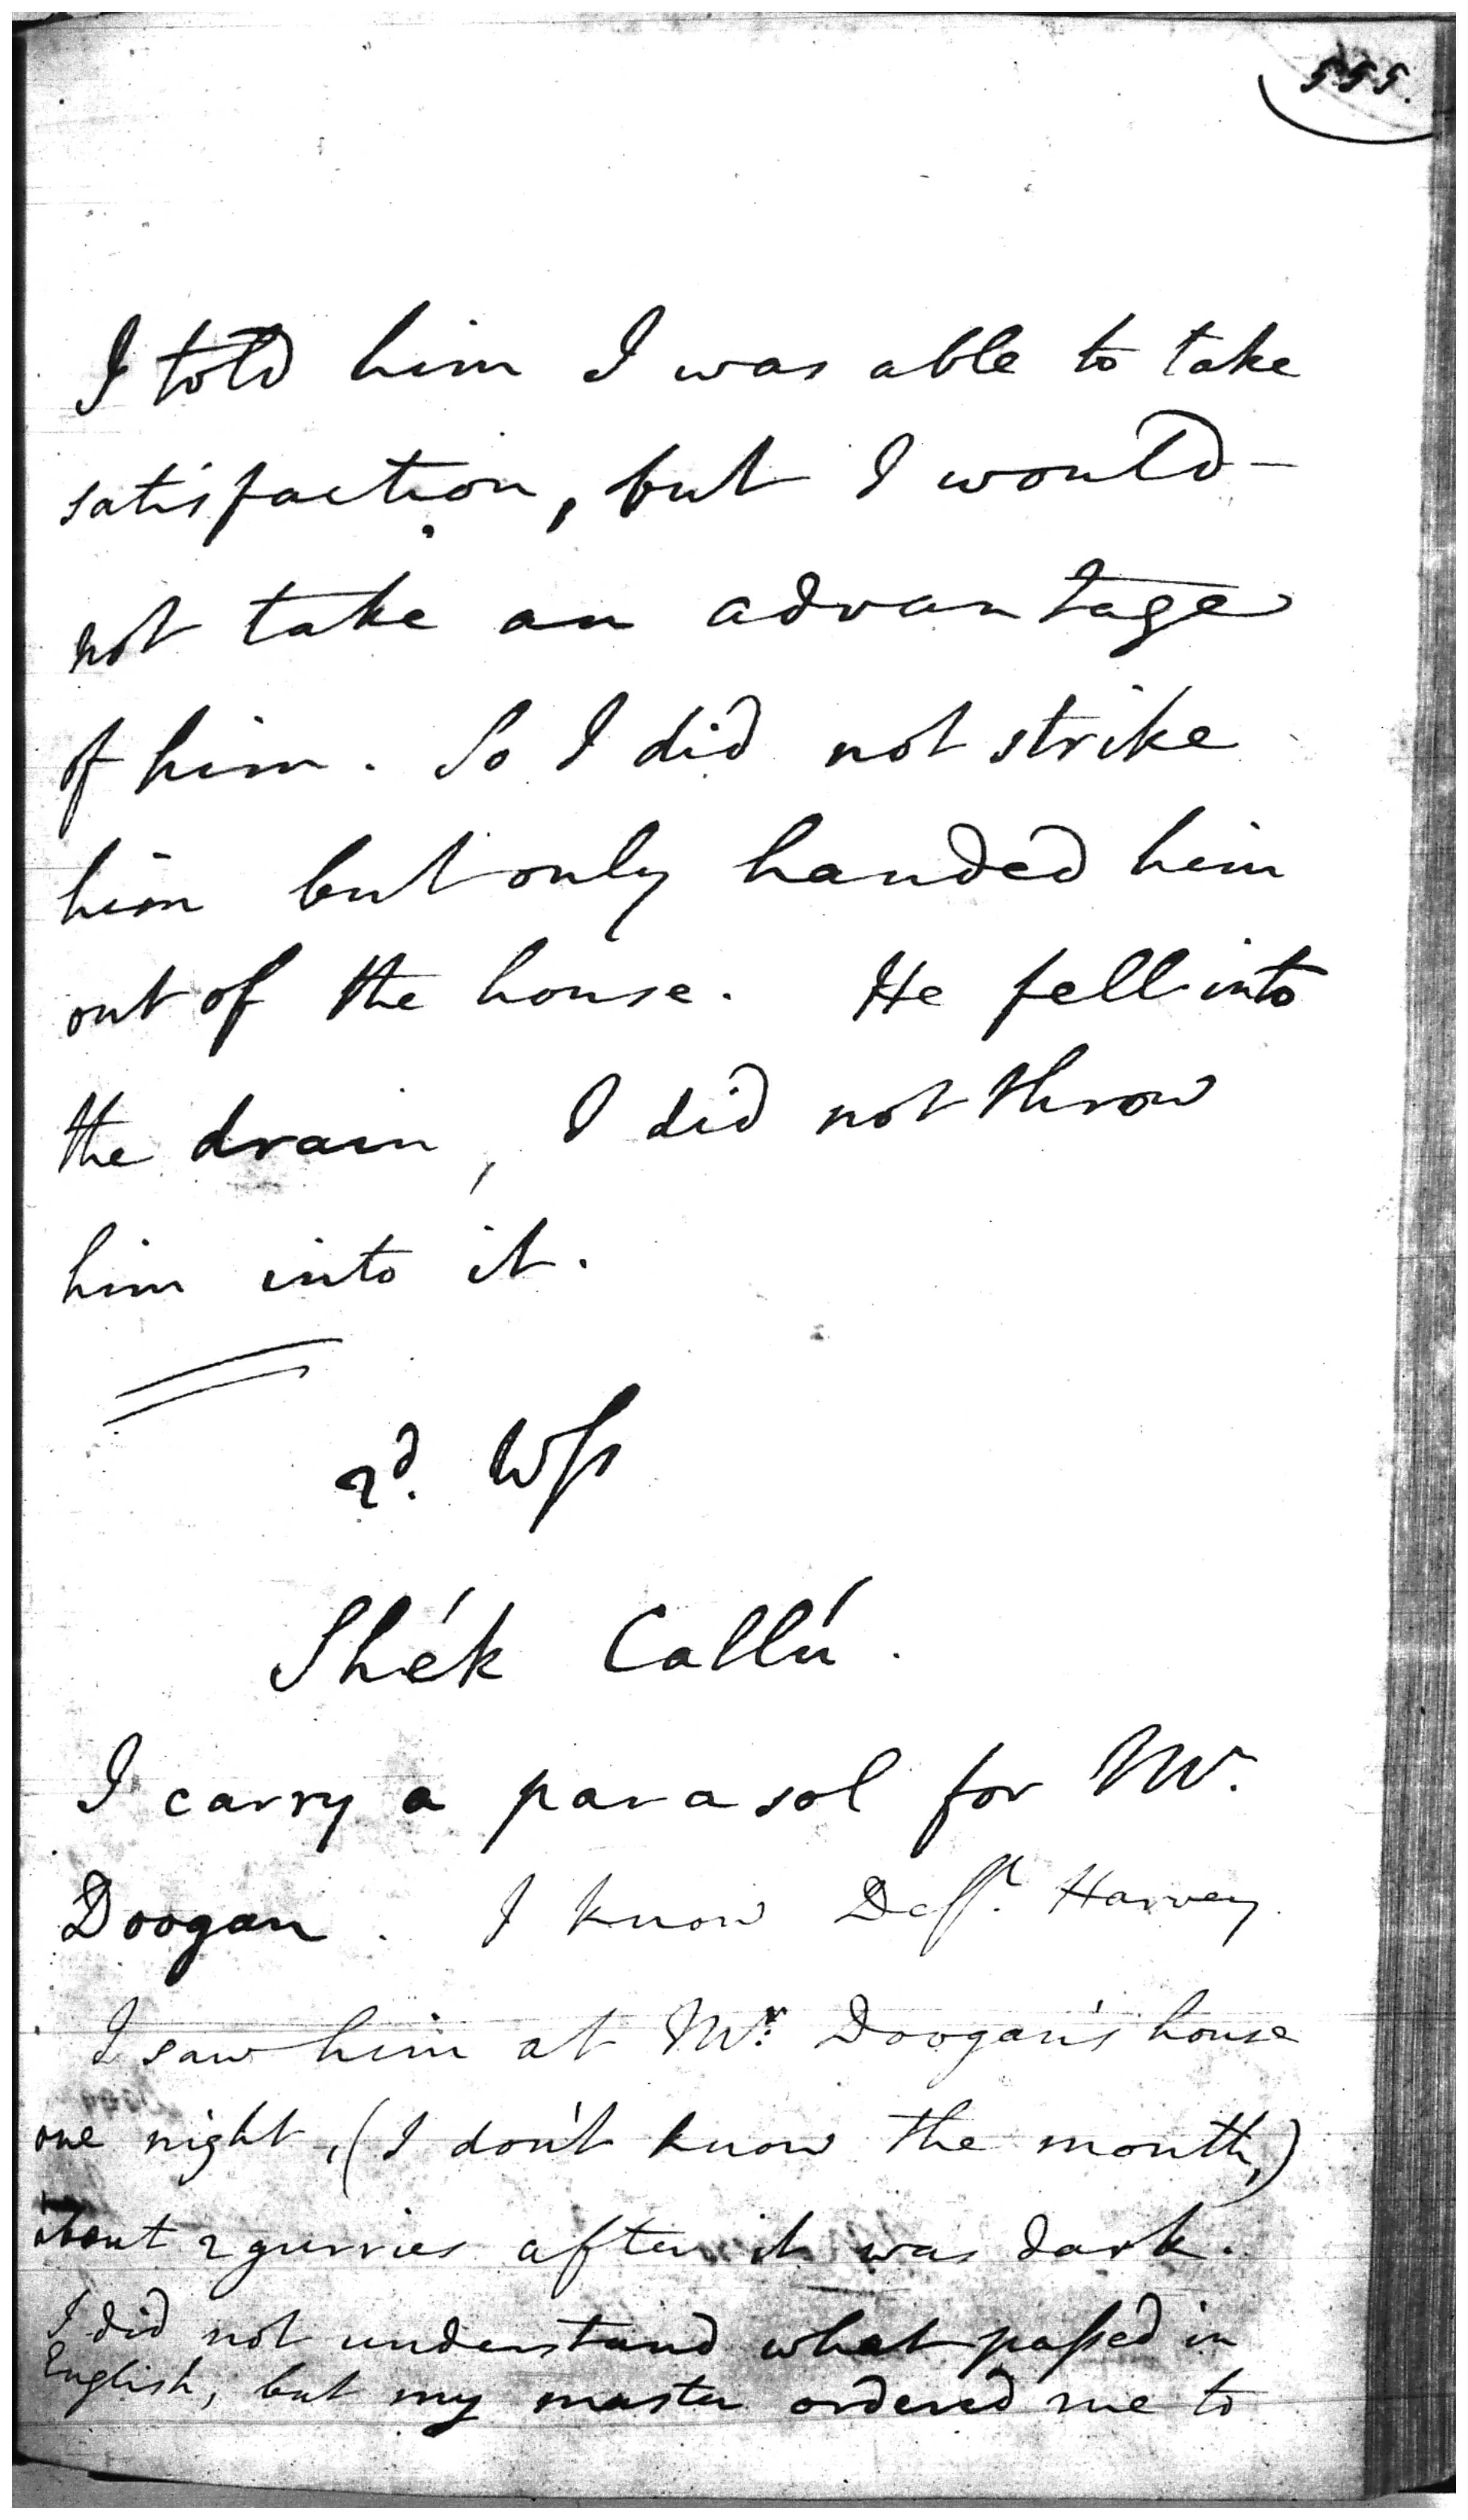 555.
I told him I was able to take
satisfaction, but I would -
not take an advantage
of him. So I did not strike
him but only handed him
out of the house. He fell into
the drain, I did not throw
him into it.
2d. Wſs
Shék Callú.
I carry a parasol for Mr.
Doogan. I know Defft. Harvey.
I saw him at Mr. Doogan's house
one night, (I don't know the month,)
about 2 gurries after it was dark.
I did not understand what paſsed in
English, but my master ordered me to